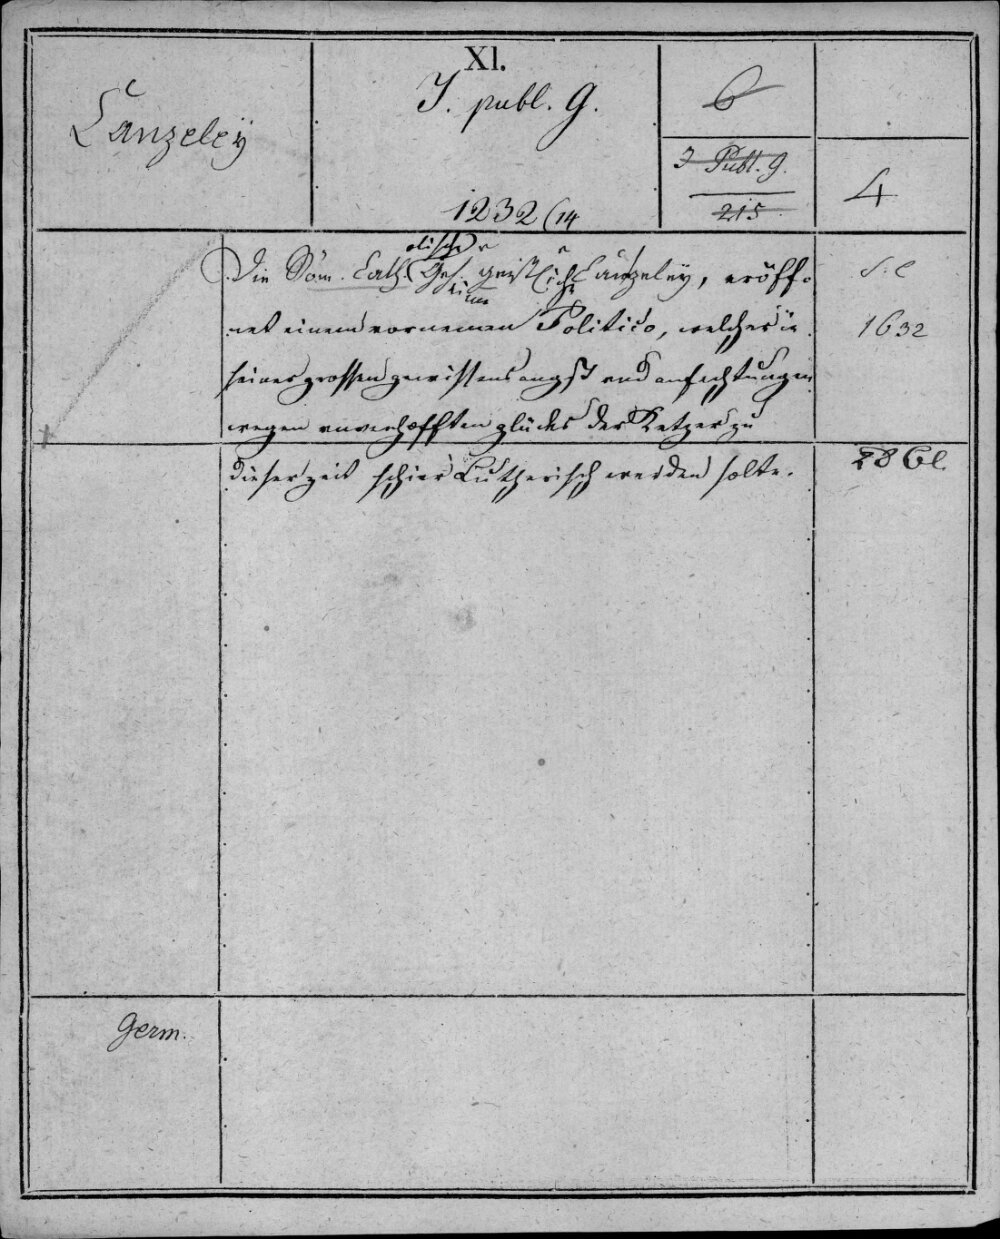 Canzeley
XI.
J. publ. g.
1232 (14
6
J Publ. g.
215
4
Die Röm. Cath olische Geh. geistliche Canzeley, eröff-
net einem vornemen Politico, welcher in
seiner grossen gewissens angst und anfechtungen
wegen unverhofften glückes der Ketzer zu
dieser zeit schier Lutherisch werden solte.
s. l.
1632
28 Bl.
Germ.